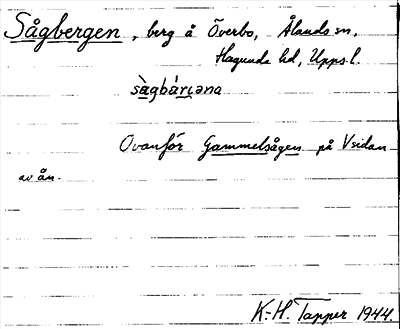 Sågbergen, berg å Överbo, Ålands sn,
Hagunda hd, Upps.l.
sàgbárɩəna
Ovanför Gammelsågen på V sidan
av ån.
K.-H. Tapper 1944.